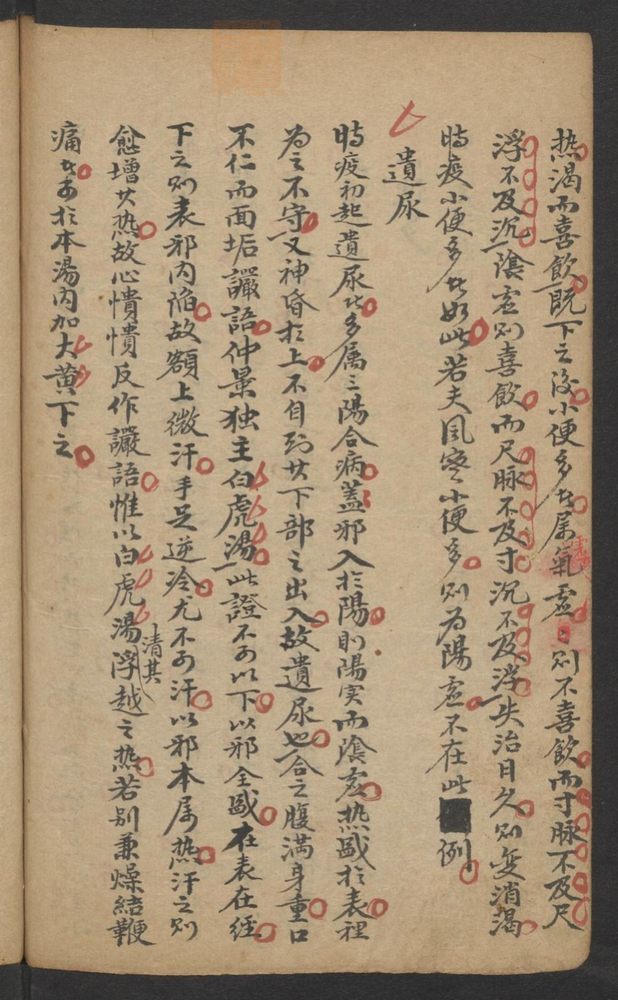 热渴而喜飲既下之后小便多者属氣虚則不喜飲而寸脉不及尺
浮不及沉陰虚則喜飲而尺脉不及寸沉不及浮失治日久則变消渴
時疫小便多者如此若夫風寒小便多則为陽虚不在此例
遺尿
時疫初起遺尿者多属三陽合病蓋邪入於陽則陽实而陰虚热盛於表裡
为之不守又神昏於上不自到其下部之出入故遺尿也合之腹满身重口
不仁而面垢讝語仲景独主白虎湯此證不可以下以邪全盛在表在經
下之則表邪内陷故額上微汗手足逆冷尤不可汗以邪本属热汗之則
愈增其热故心憒憒反作讝語惟以白虎湯清其浮越之热若别兼燥結鞕
痛者可於本湯内加大黄下之